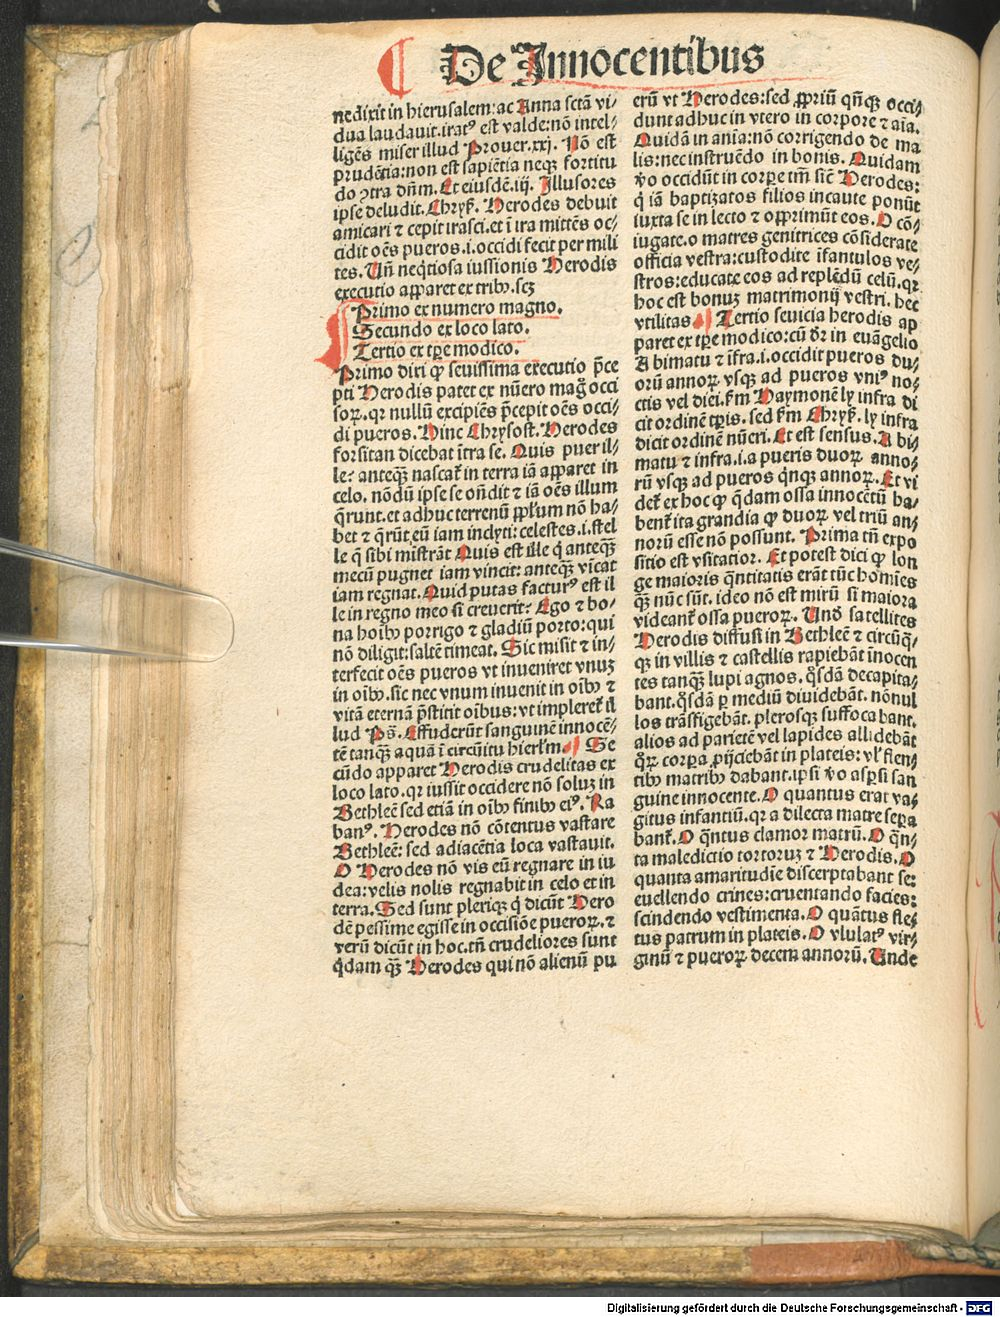 De Innocentibus
nedixit in hierusalem: ac Anna sctã vi⸗
dua laudauit. iratꝰ est valde: nõ intel⸗
ligẽs miser illud Prouer. xxj. Nõ est
prudẽtia: non est sapiẽtia neqꝫ fortitu
do ↄtra dñm. Et eiusdẽ. iij. Illusores
ipse deludit. Chryſ. Herodes debuit
amicari ⁊ cepit irasci. et ĩ ira mittẽs oc⸗
cidit oẽs pueros .i. occidi fecit per mili
tes. Uñ neq̃tiosa iussionis Herodis
executio apparet ex tribꝰ. scꝫ
Primo ex numero magno.
Secundo ex loco lato.
Tertio ex tꝑe modico.
Primo diri ꝙ seuissima executio p̃ce
pti Herodis patet ex nũero mag̃ occi
soꝝ. qꝛ nullũ excipiẽs p̃cepit oẽs occi⸗
di pueros. Hinc Chrysost. Herodes
forsitan dicebat ĩtra se. Quis puer il⸗
le: anteqꝫ̃ nascat᷑ in terra iã apparet in
celo. nõdũ ipse se oñdit ⁊ iã oẽs illum
q̃runt. et adhuc terrenũ ppl̃um nõ ha⸗
bet ⁊ q̃rũt eũ iam indyti: celestes .i. stel
le q̃ sibi mĩstrãt Quis est ille q̇ anteqꝫ̃
mecũ pugnet iam vincit: anteqꝫ̃ viuat
iam regnat. Quid putas facturꝰ est il
le in regno meo si creuerit: Ego ⁊ bo⸗
na hoibꝰ porrigo ⁊ gladiũ porto: qui
nõ diligit: saltẽ timeat. Sic misit ⁊ in⸗
terfecit oẽs pueros vt inueniret vnuꝫ
in oĩbꝰ. sic nec vnum inuenit in oĩbꝰ ⁊
vitã eternã p̃stitit oĩbus: vt impleret᷑ il
lud Pš. Effuderũt sanguinẽ innocẽ⸗
tẽ tanqꝫ̃ aquã ĩ circũitu hierlm̃. Se
cũdo apparet Herodis crudelitas ex
loco lato. qꝛ iussit occidere nõ soluꝫ in
Bethleẽ sed etiã in oĩbꝰ finibꝰ eiꝰ. Ra
banꝰ. Herodes nõ cõtentus vastare
Bethleẽ: sed adiacẽtia loca vastauit.
O Herodes nõ vis eũ regnare in iu
dea: velis nolis regnabit in celo et in
terra. Sed sunt pleriqꝫ q̇ dicũt Hero
dẽ pessime egisse in occisiõe pueroꝝ. ⁊
verũ dicũt in hoc. tñ crudeliores sunt
q̇dam qꝫ̃ Herodes qui nõ alienũ pu
erũ vt Herodes: sed ꝓpriũ qñqꝫ occi⸗
dunt adhuc in vtero in corpore ⁊ aĩa.
Quidã in aĩa: nõ corrigendo de ma
lis: nec instruẽdo in bonis. Quidam
ṽo occidũt in corꝑe tm̃ sicẽ Herodes:
q̇ iã baptizatos filios incaute ponũt
iuxta se in lecto ⁊ opprimũt eos. O cõ⸗
iugate. o matres genitrices cõsiderate
officia vestra: custodite ĩfantulos ve⸗
stros: educate eos ad replẽdũ celũ. qꝛ
hoc est bonuꝫ matrimonij vestri. hec
vtilitas Tertio seuicia herodis ap
paret ex tꝑe modico: cũ dr̃ in euãgelio
A bimatu ⁊ ĩfra .i. occidit pueros du⸗
orũ annoꝝ. vsqꝫ ad pueros vniꝰ no⸗
ctis vel diei. fm̃ Haymonẽ ly infra di
cit ordinẽ tꝑis. sed fm̃ Chryſ. ly infra
dicit ordinẽ nũeri. Et est sensus. A bi⸗
matu ⁊ infra .i. a pueris duoꝝ anno⸗
rũ vsqꝫ ad pueros q̇nqꝫ annoꝝ. Et vi
det᷑ ex hoc ꝙ q̇dam ossa innocẽtũ ha⸗
bent᷑ ita grandia ꝙ duoꝝ vel triũ an⸗
norũ esse nõ possunt. Prima tñ expo
sitio est vsitatior. Et potest dici ꝙ lon
ge maioris q̃ntitatis erãt tũc hoĩes
qꝫ̃ nũc sũt. ideo nõ est mirũ si maiora
videant᷑ ossa pueroꝝ. Uñ satellites
Herodis diffusi in Bethleẽ ⁊ circũq̃⸗
qꝫ in villis ⁊ castellis rapiebãt ĩnocen
tes tanqꝫ̃ lupi agnos. q̊sdã decapita⸗
bant. q̊sdã ꝑ mediũ diuidebãt. nõnul
los trãsfigebãt. plerosqꝫ suffocabant.
alios ad parietẽ vel lapides allidebãt
q̊ꝝ corꝑa ꝓijciebãt in plateis: vl̃ flen⸗
tibꝰ matribꝰ dabant. ipsi ṽo asꝑsi san
guine innocente. O quantus erat va⸗
gitus infantiũ. qꝛ a dilecta matre seꝑa
bant᷑. O q̃ntus clamor matrũ. O q̃n⸗
ta maledictio tortoruꝫ ⁊ Herodis. O
quanta amaritudĩe discerptabant se:
euellendo crines: cruentando facies:
scindendo vestimenta. O quãtus fle⸗
tus patrum in plateis. O vlulatꝰ vir⸗
ginũ ⁊ pueroꝝ decem annorũ. Unde
Digitalisierung gefördert durch die Deutsche Forschungsgemeinschaft - DFG